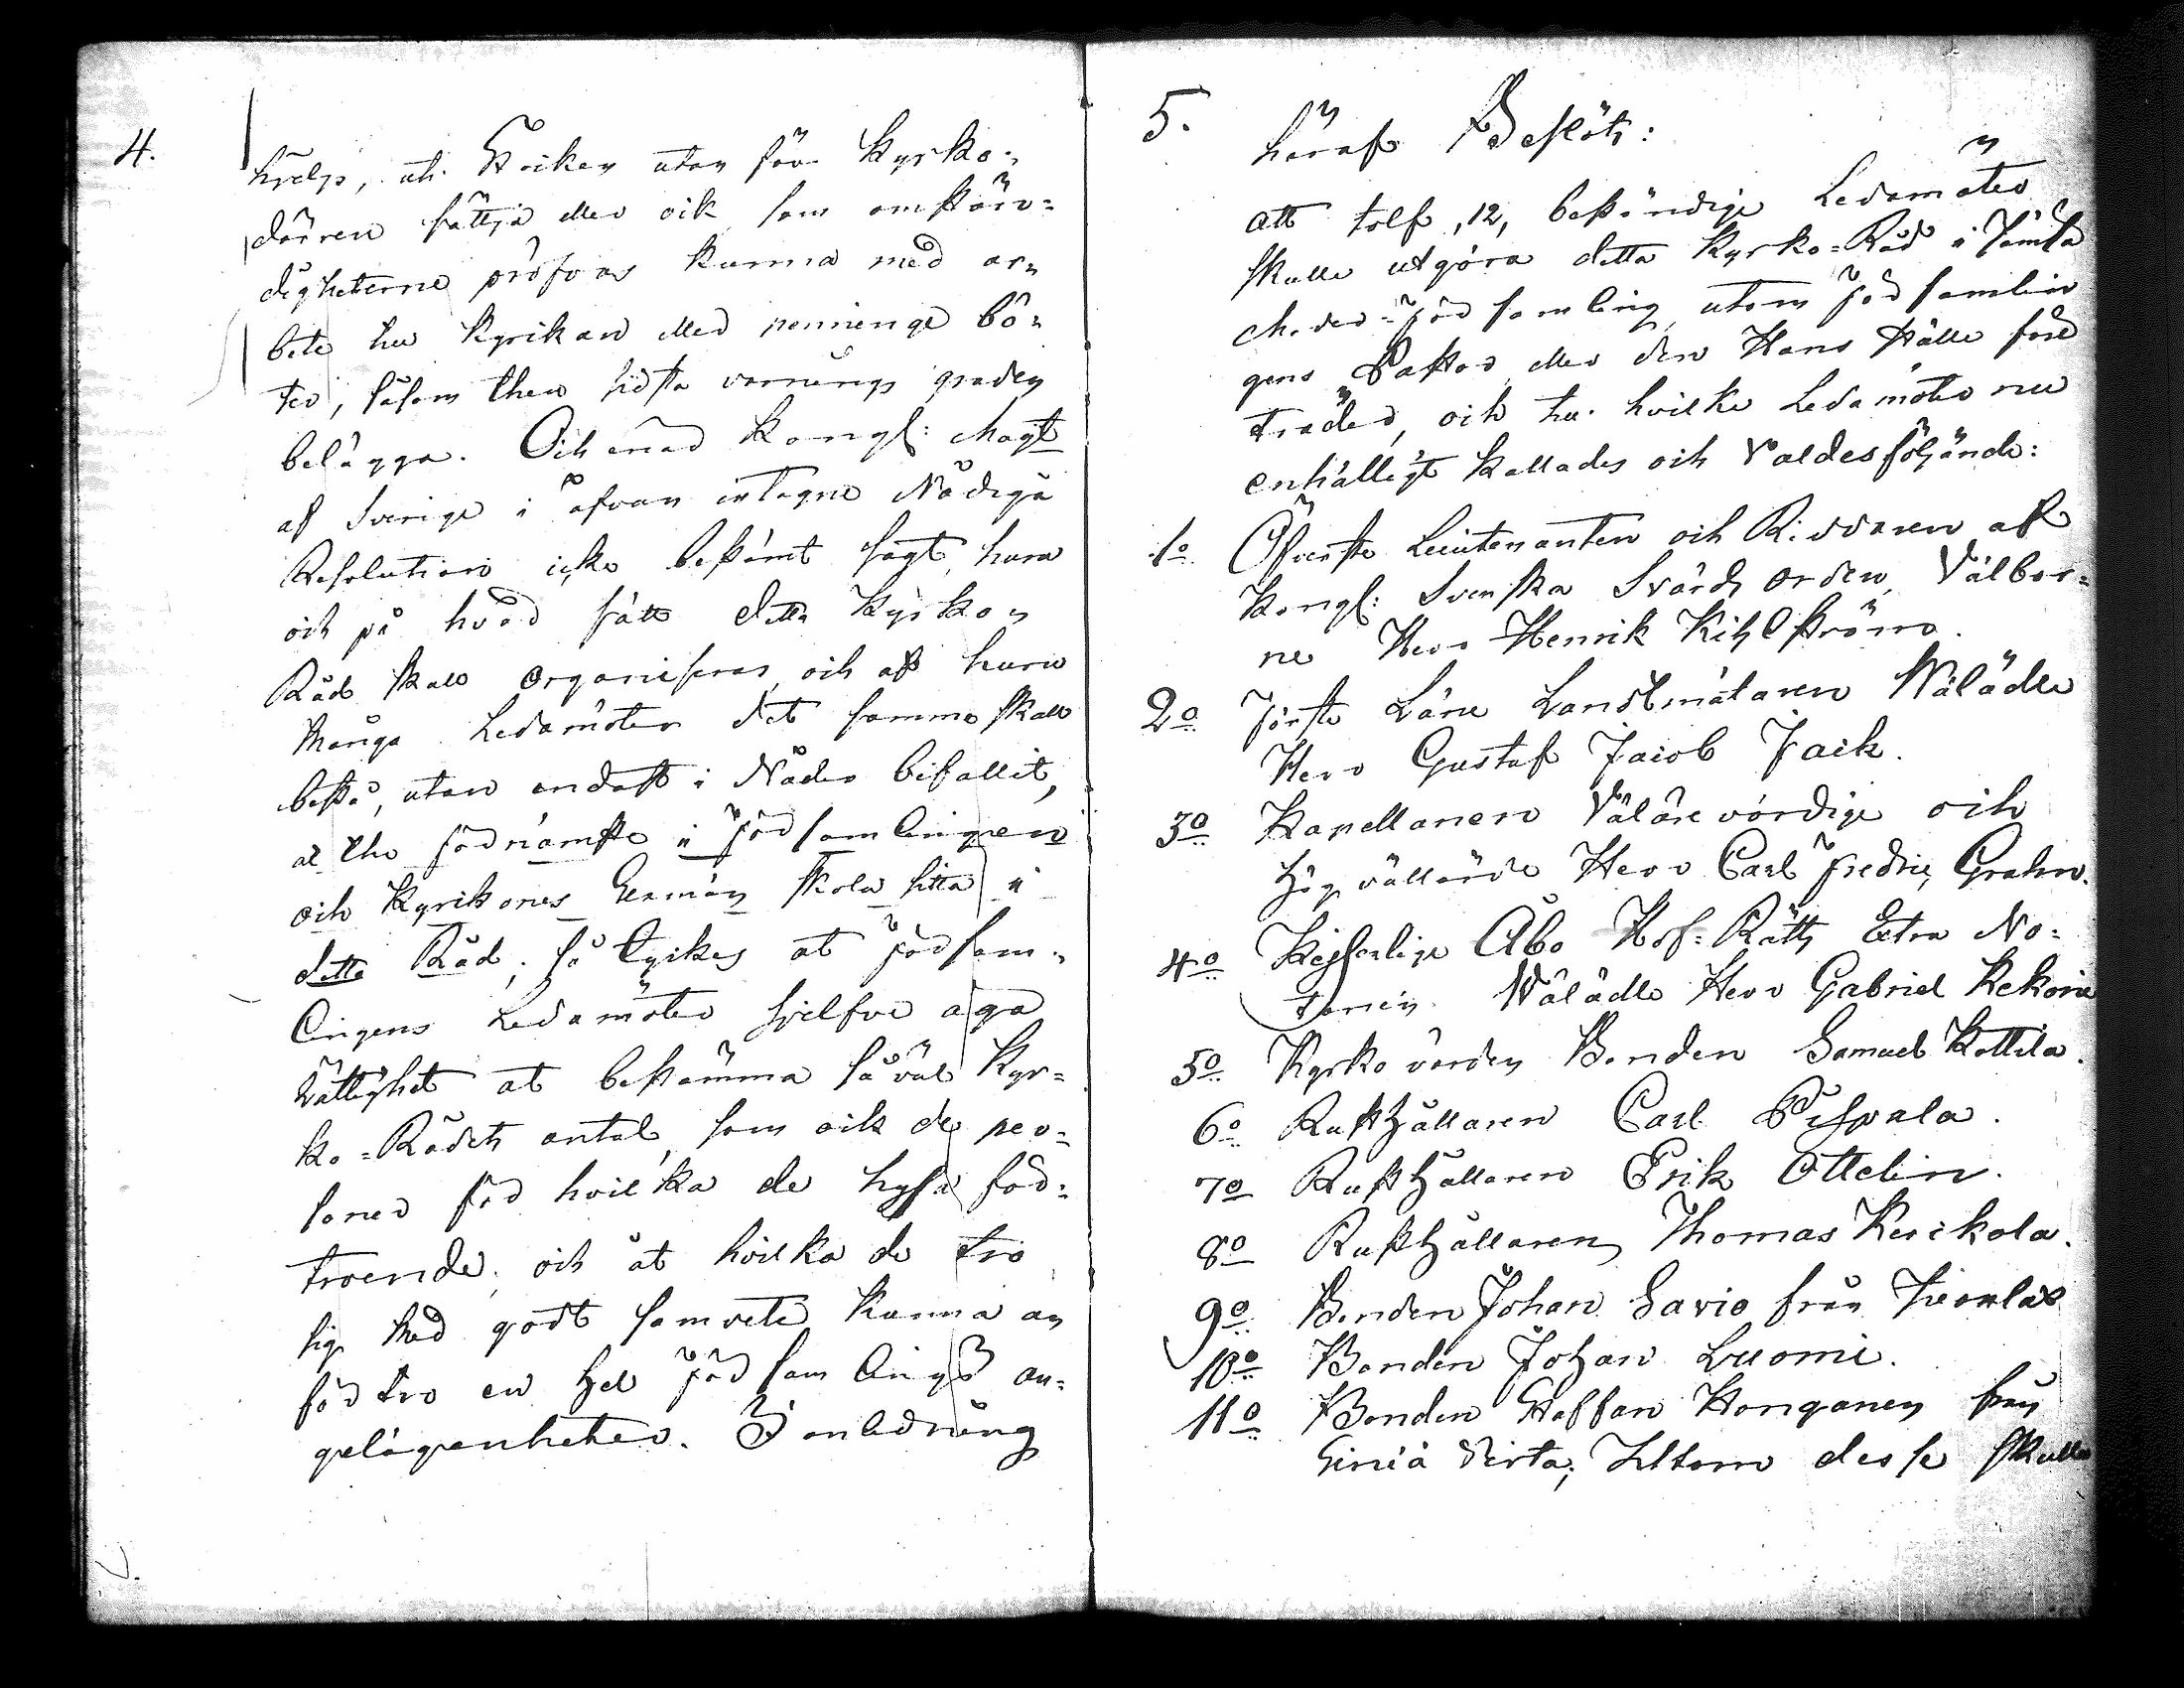 4.
hjelp, uti Stocken utan för Kyrko-
dörren sättja eller ock som omstän-
digheterne pröfvas kunna med ar-
bete hu Kyrkan eller penninge bö-
ter, såsom then sidsta varnings graden
belägga. Och enär Kongl: Maj:t
af Sverige i åfvan intagne Nådiga
Resolution icke bestämt sagt, huru
och på hvad sätt detta Kyrko-
Råd skall Organiseras, och af huru
Många Ledamöter det samma skall
bestå, utan endast i Nåder bifallit,
at the förnämste i Församlingen
och Kyrkones Sexmän skola sitta i
detta Råd; så tyckes at Försam-
lingens Ledamöter sjelfve äga
Rättighet at bestämma så väl Kyr-
ko-Rådets antal, som ock de per-
soner för hvilka de hysa för-
troende, och åt hvilka de tro
sig Med godt samvete kunna an
förtro en hel Församlings an-
gelägenheter. I anledning
5.
häraf Beslöts:
att tolf, 12, beständige Ledamöter
skulle utgöra detta Kyrko-Råd i Jämsä
Moder-Församling, utom Församlin
gens Pastor eller den Hans ställe före
träder, och till hvilke Ledamöter nu
enhälligt kallades och Valdes följande:
1o Öfverste Lieutenanten och Riddaren af
Kongl: Svenska Svärds Orden, Välbor-
ne Herr Henrik Kihlström.
2o Förste Läne Landtmätaren Wälädle
Herr Gustaf Jacob Jack.
3o Kapellanen Välärevördige och
Högvällärde Herr Carl Fredric Grahn.
4o Kejserlige Åbo Hof-Rätts Extra No-
tarien Wälädle Herr Gabriel Rekone
5o Kyrko värden Bonden Samuel Kottila.
6o Rusthållaren Carl Pispala.
7o Rusthållaren Erik Ottelin.
8o Rusthållaren Thomas Kerikola.
9o Bonden Johan Savio från
10o Bonden Johan Luomi.
11o Bonden Staffan Honganen från
Utom desse skulle